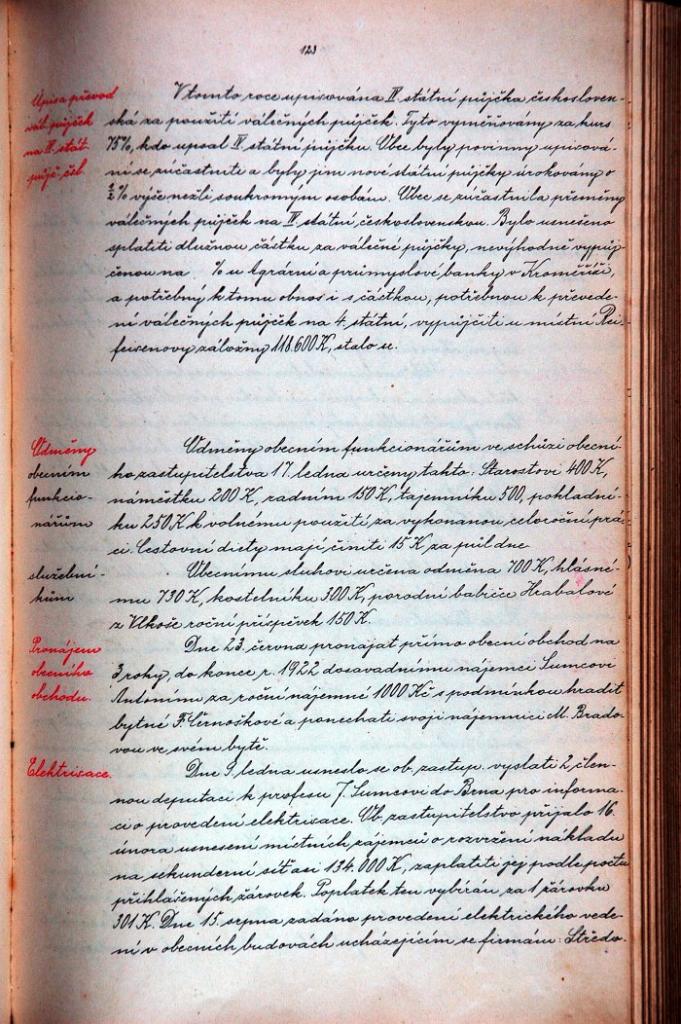 123
Upis a převod
vál. půjček
na IV. stát.
půjč. čsl.
V tomto roce upisována IV. státní půjčka českosloven-
ská za použití válečných půjček. Tyto vyměňovány za kurs
75%, kdo upsal IV. státní půjčku. Obce byly povinny upisová-
ní se súčastnite a byly jim nové státní půjčky úrokovány o
½% výše nežli soukromým osobám. Obec se zúčastnila přeměny
válečných půjček na IV. státní, československou. Bylo usneseno
splatiti dlužnou částku za válečné půjčky, nevýhodně vypůj-
čenou na % u Agrární a průmyslové banky v Kroměříži,
a potřebný k tomu obnos i s částkou, potřebnou k převede-
ní válečných půjček na 4. státní, vypůjčiti u místní Rei-
feisenovy záložny 118.600 K, stalo se.
Odměny
obecním
funkcio-
nářům
Odměny obecním funkcionářům ve schůzi obecní-
ho zastupitelstva 17. ledna určeny takto: Starostovi 400 K,
náměstku 200 K, radním 150 K, tajemníku 500, pokladní-
ku 250 K k volnému použití za vykonanou celoroční prá-
ci. Cestovní diety mají činiti 15 K za půl dne
služební-
kům
Obecnímu sluhovi určena odměna 700 K, hlásné-
mu 730 K, kostelníku 300 K, porodní babičce Hrabalové
z Vlkoše roční příspěvek 150 K.
Pronájem
obecního
obchodu.
Dne 23. června pronajat přímo obecní obchod na
3 roky, do konce r. 1922 dosavadnímu nájemci Sumcovi
Antonínu za roční nájemné 1000 Kč s podmínkou hradit
bytné F. Černoškové a ponechati svoji nájemnici M. Brado-
vou ve svém bytě.
Elektrisace.
Dne 9. ledna usneslo se ob. zastup. vyslati 2 člen-
nou deputaci k profesu J. Sumcovi do Brna pro informa-
ci o provedení elektrisace. Ob. zastupitelstvo přijalo 16.
února usnesení místních zájemců o rozvržení nákladu
na sekunderní síť asi 134.000 K, zaplatiti jej podle počtu
přihlášených žárovek. Poplatek ten vybírán za 1 žárovku
301 K. Dne 15. srpna zadáno provedení elektrického vede-
ní v obecních budovách ucházejícím se firmám: Středo-